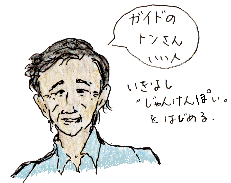 ガイドの
トンさん
いい人
いきなし
"じゃんけんぽい"
をはじめる.